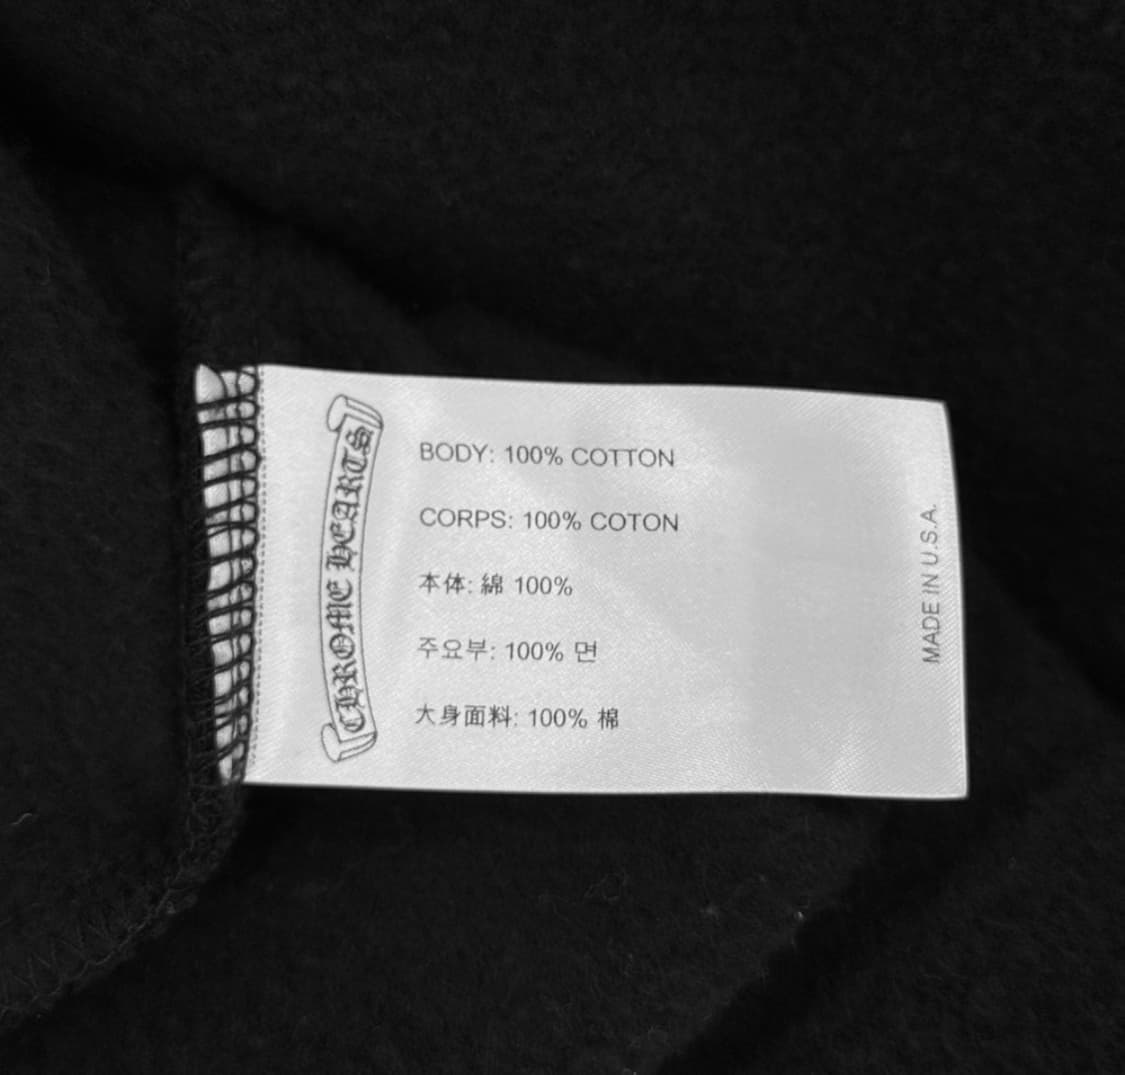 CHROME HEARTS
BODY: 100% COTTON
CORPS: 100% COTON
本体: 綿 100%
주요부: 100% 면
大身面料: 100% 棉
MADE IN U.S.A.